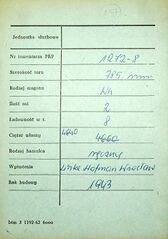 Jednostka służbowa
Nr inwentarza PKP 1972-8
Szerokość toru 785 mm
Rodzaj wagonu Wh
Ilość osi 2
Ładowność w t. 8
Ciężar własny 4840 4660
Rodzaj hamulca ręczny
Wytwórnia Linke Hofman Wrocław
Rok budowy 1943